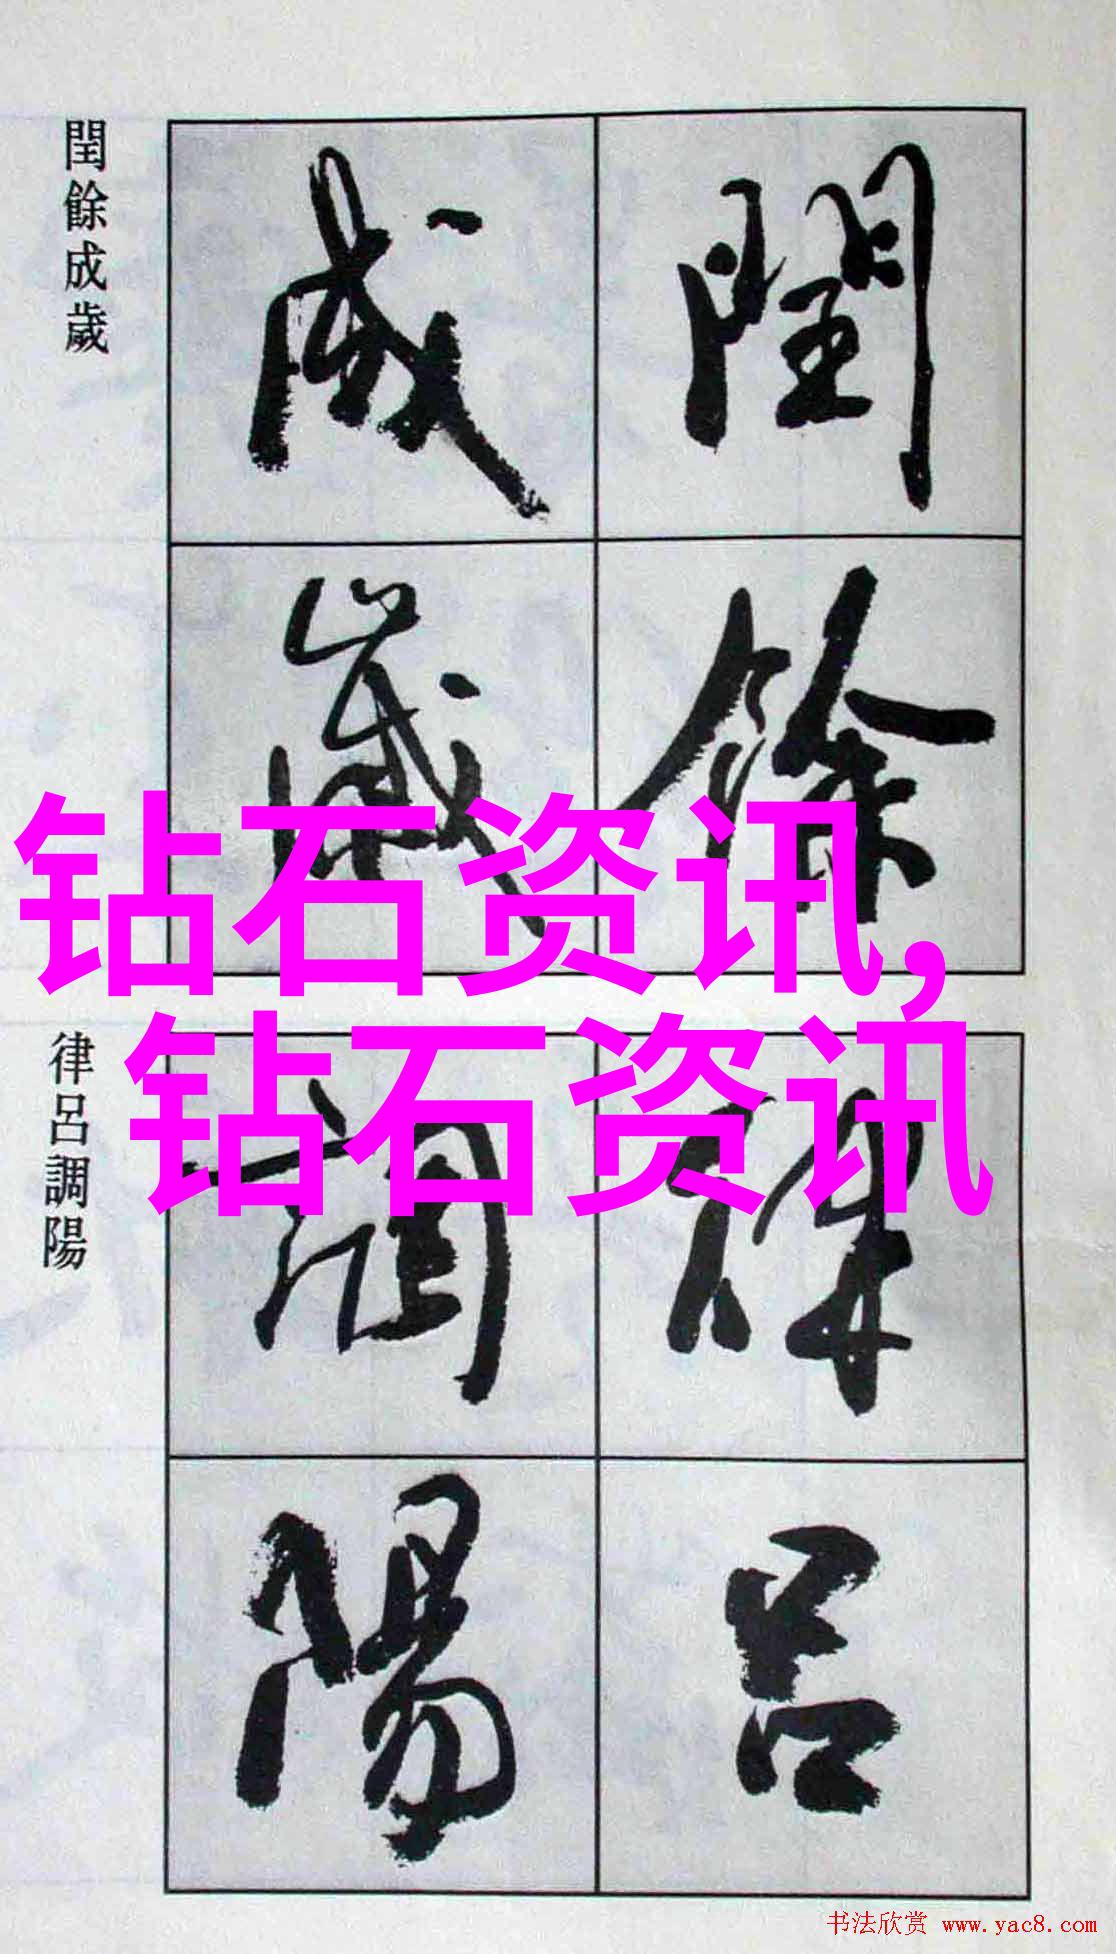 閏餘成歲
閏餘
成歲
钻石资讯,
钻石资讯
律呂調陽
律呂
調陽
书法欣赏 www.yac8.com